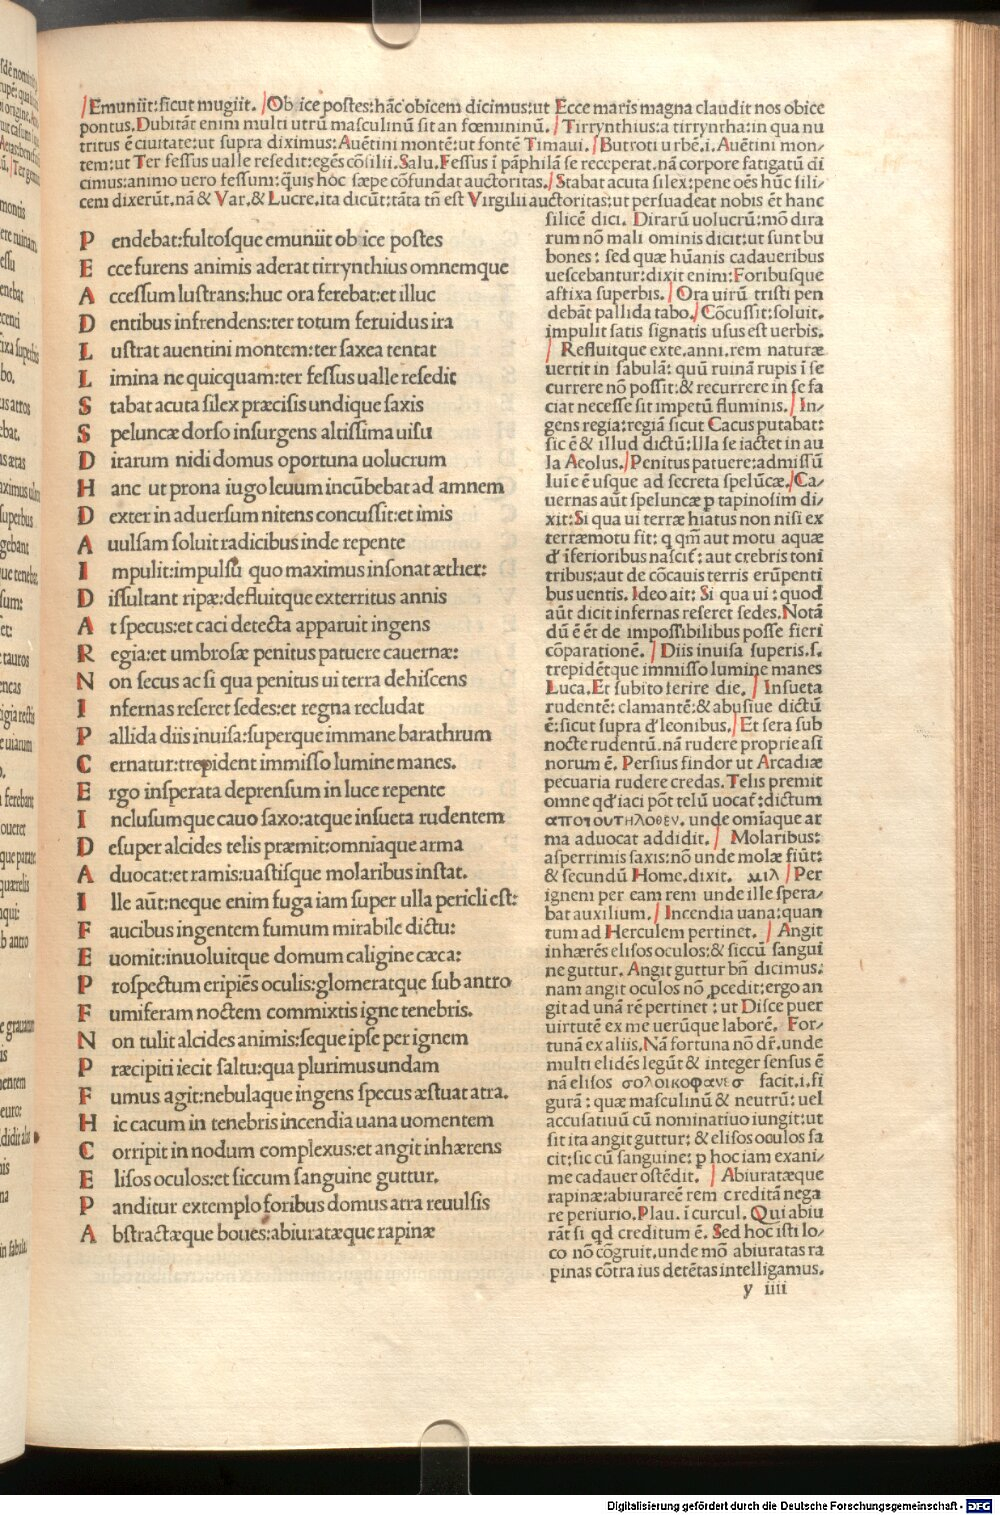 Emuniit:sicut mugiit. Ob ice postes:hãc obicem dicimus:ut Ecce maris magna claudit nos obice
pontus. Dubitãt enim multi utrũ masculinũ sit an fœmininũ. Tirrynthius:a tirryntha:in qua nu
tritus ē ciuitate:ut supra diximus: Auẽtini montẽ:ut fontẽ Timaui. Butroti urbẽ.i. Auẽtini mon/
tem:ut Ter fessus ualle resedit:egẽs cõsilii. Salu. Fessus ĩ pãphilã se receperat.nã corpore fatigatũ di
cimus:animo uero fessum:q̃uis hoc sæpe cõfundat auctoritas. Stabat acuta silex:pene oẽs hũc sili/
cem dixerũt.nã & Var.& Lucre.ita dicũt:tãta tñ est Virgilii auctoritas:ut persuadeat nobis ẽt hanc
Pendebat:fultosque emuniit ob ice postes
Ecce furens animis aderat tirrynthius omnemque
Accessum lustrans:huc ora ferebat:et illuc
Dentibus infrendens:ter totum feruidus ira
Lustrat auentini montem:ter saxea tentat
Limina ne quicquam:ter fessus ualle resedit
Stabat acuta silex præcisis undique saxis
Speluncæ dorso insurgens altissima uisu
Dirarum nidi domus oportuna uolucrum
Hanc ut prona iugo leuum incũbebat ad amnem
Dexter in aduersum nitens concussit:et imis
Auulsam soluit radicibus inde repente
Impulit:impulsũ quo maximus insonat æther:
Dissultant ripæ:defluitque exterritus annis
At specus:et caci detecta apparuit ingens
Regia:et umbrosæ penitus patuere cauernæ:
Non secus ac si qua penitus ui terra dehiscens
Infernas reseret sedes:et regna recludat
Pallida diis inuisa:superque immane barathrum
Cernatur:trepident immisso lumine manes.
Ergo insperata deprensum in luce repente
Inclusumque cauo saxo:atque insueta rudentem
Desuper alcides telis præmit:omniaque arma
Aduocat:et ramis:uastisque molaribus instat.
Ille aũt:neque enim fuga iam super ulla pericli est:
Faucibus ingentem fumum mirabile dictu:
Euomit:inuoluitque domum caligine cæca:
Prospectum eripiẽs oculis:glomeratque sub antro
Fumiferam noctem commixtis igne tenebris.
Non tulit alcides animis:seque ipse per ignem
Præcipiti iecit saltu:qua plurimus undam
Fumus agit:nebulaque ingens specus æstuat atra.
Hic cacum in tenebris incendia uana uomentem
Corripit in nodum complexus:et angit inhærens
Elisos oculos:et siccum sanguine guttur.
Panditur extemplo foribus domus atra reuulsis
Abstractæque boues:abiuratæque rapinæ
silicẽ dici. Dirarũ uolucrũ:mõ dira
rum nõ mali ominis dicit:ut sunt bu
bones: sed quæ hũanis cadaueribus
uescebantur:dixit enim:Foribusque
affixa superbis. Ora uirũ tristi pen
debãt pallida tabo. Cõcussit:soluit.
impulit satis signatis usus est uerbis.
Refluitque exte.anni.rem naturæ
uertit in fabulã: quũ ruinã rupis ĩ se
currere nõ possit:& recurrere in se fa
ciat necesse sit impetũ fluminis. In/
gens regia:regiã sicut Cacus putabat:
sic ẽ & illud dictũ:Illa se iactet in au
la Aeolus. Penitus patuere:admissũ
luĩe ẽ usque ad secreta spelũcæ. Ca/
uernas aũt speluncæ ꝑ tapinosim di/
xit:Si qua ui terræ hiatus non nisi ex
terræmotu fit: q qm̃ aut motu aquæ
đ ĩferioribus nascit̃: aut crebris toni
tribus:aut de cõcauis terris erũpenti
bus uentis. Ideo ait: Si qua ui: quod
aũt dicit infernas reseret sedes. Notã
dũ ẽ ẽt de impossibilibus posse fieri
cõparationẽ. Diis inuisa superis.s.
trepidẽtque immisso lumine manes
Luca. Et subito ferire die. Insueta
rudentẽ: clamantẽ:& abusiue dictũ
ẽ:sicut supra đ leonibus. Et sera sub
nocte rudentũ.nã rudere proprie asi
norum ẽ. Persius findor ut Arcadiæ
pecuaria rudere credas. Telis premit
omne qđ iaci põt telũ uocat̃:dictum
απο του τηλοθεν. unde omĩaque ar
ma aduocat addidit. Molaribus:
asperrimis saxis:nõ unde molæ fiũt:
& secundũ Home.dixit. μιλ Per
ignem per eam rem unde ille spera/
bat auxilium. Incendia uana:quan
tum ad Herculem pertinet. Angit
inhærẽs elisos oculos:& siccũ sangui
ne guttur. Angit guttur bñ dicimus:
nam angit oculos nõ ꝓcedit:ergo an
git ad unã rẽ pertinet: ut Disce puer
uirtutẽ ex me uerũque laborẽ. For/
tunã ex aliis. Nã fortuna nõ dr̃.unde
multi elidẽs legũt & integer sensus ẽ
nã elisos σολοικοφανεσ facit.i.fi
gurã: quæ masculinũ & neutrũ: uel
accusatiuũ cũ nominatiuo iungit:ut
sit ita angit guttur: & elisos oculos fa
cit:sic cũ sanguine: ꝑ hoc iam exani/
me cadauer ostẽdit. Abiuratæque
rapinæ:abiurareẽ rem creditã nega
re periurio. Plau. ĩ curcul. Qui abiu
rãt si qđ creditum ẽ. Sed hoc isti lo/
co nõ cõgruit.unde mõ abiuratas ra
pinas cõtra ius detẽtas intelligamus.
y iiii
Digitalisierung gefördert durch die Deutsche Forschungsgemeinschaft - DFG